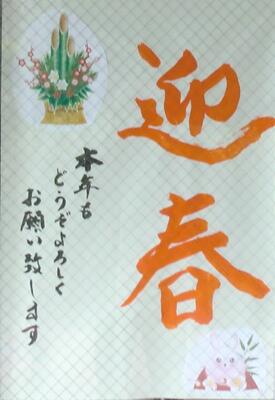 迎春
本年も
どうぞよろしく
お願い致します